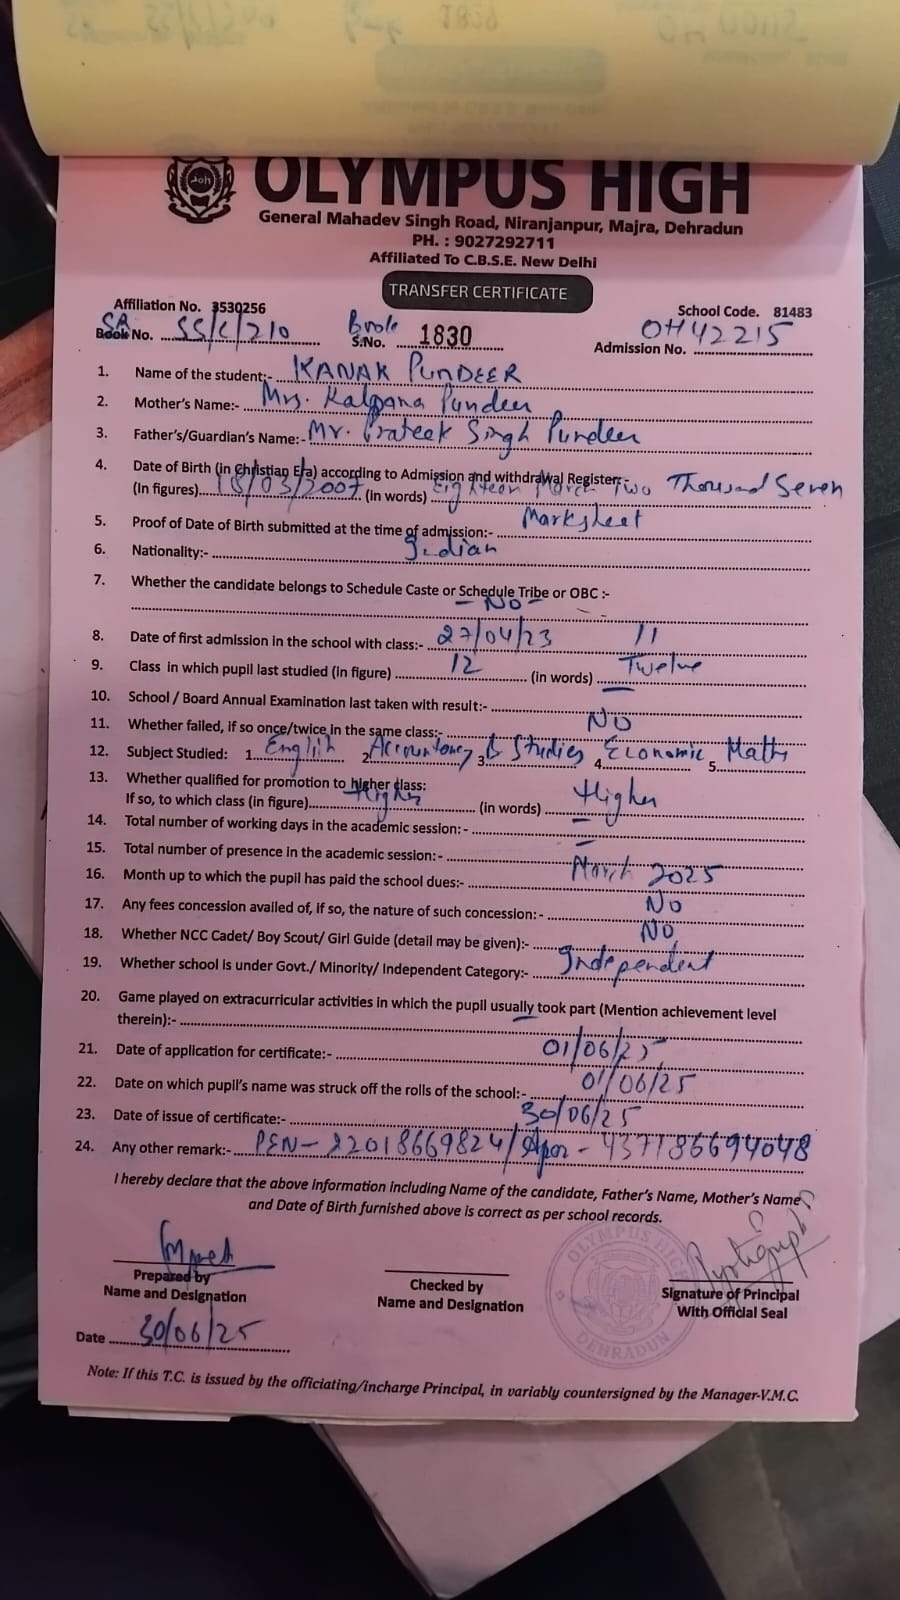 OLYMPUS HIGH
General Mahadev Singh Road, Niranjanpur, Majra, Dehradun
PH. : 9027292711
Affiliated To C.B.S.E. New Delhi
TRANSFER CERTIFICATE
Affiliation No. 3530256 School Code. 81483
SR Book No. SS/C/210 Book S.No. 1830 Admission No. OH42215
1. Name of the student:- KANAK PUNDEER
2. Mother's Name:- Mrs. Kalpana Pundeer
3. Father's/Guardian's Name:- Mr. Prateek Singh Pundeer
4. Date of Birth (in Christian Era) according to Admission and withdrawal Register:-
(In figures) 18/03/2007 (in words) Eighteen March Two Thousand Seven
5. Proof of Date of Birth submitted at the time of admission:- Marksheet
6. Nationality:- Indian
7. Whether the candidate belongs to Schedule Caste or Schedule Tribe or OBC :-
- No -
8. Date of first admission in the school with class:- 27/04/23 11
9. Class in which pupil last studied (in figure) 12 (in words) Twelve
10. School / Board Annual Examination last taken with result:- —
11. Whether failed, if so once/twice in the same class:- No
12. Subject Studied: 1. English 2. Accountancy 3. B Studies 4. Economic 5. Maths
13. Whether qualified for promotion to higher class:
If so, to which class (in figure) Higher (in words) Higher
14. Total number of working days in the academic session: - —
15. Total number of presence in the academic session: - —
16. Month up to which the pupil has paid the school dues:- March 2025
17. Any fees concession availed of, if so, the nature of such concession: - No
18. Whether NCC Cadet/ Boy Scout/ Girl Guide (detail may be given):- No
19. Whether school is under Govt./ Minority/ Independent Category:- Independent
20. Game played on extracurricular activities in which the pupil usually took part (Mention achievement level
therein):- —
21. Date of application for certificate:- 01/06/25
22. Date on which pupil's name was struck off the rolls of the school:- 01/06/25
23. Date of issue of certificate:- 30/06/25
24. Any other remark:- PEN- 22018669824/ Apar - 437786694048
I hereby declare that the above information including Name of the candidate, Father's Name, Mother's Name
and Date of Birth furnished above is correct as per school records.
OLYMPUS HIGH
DEHRADUN
Prepared by Checked by Signature of Principal
Name and Designation Name and Designation With Official Seal
Date 30/06/25
Note: If this T.C. is issued by the officiating/incharge Principal, in variably countersigned by the Manager-V.M.C.